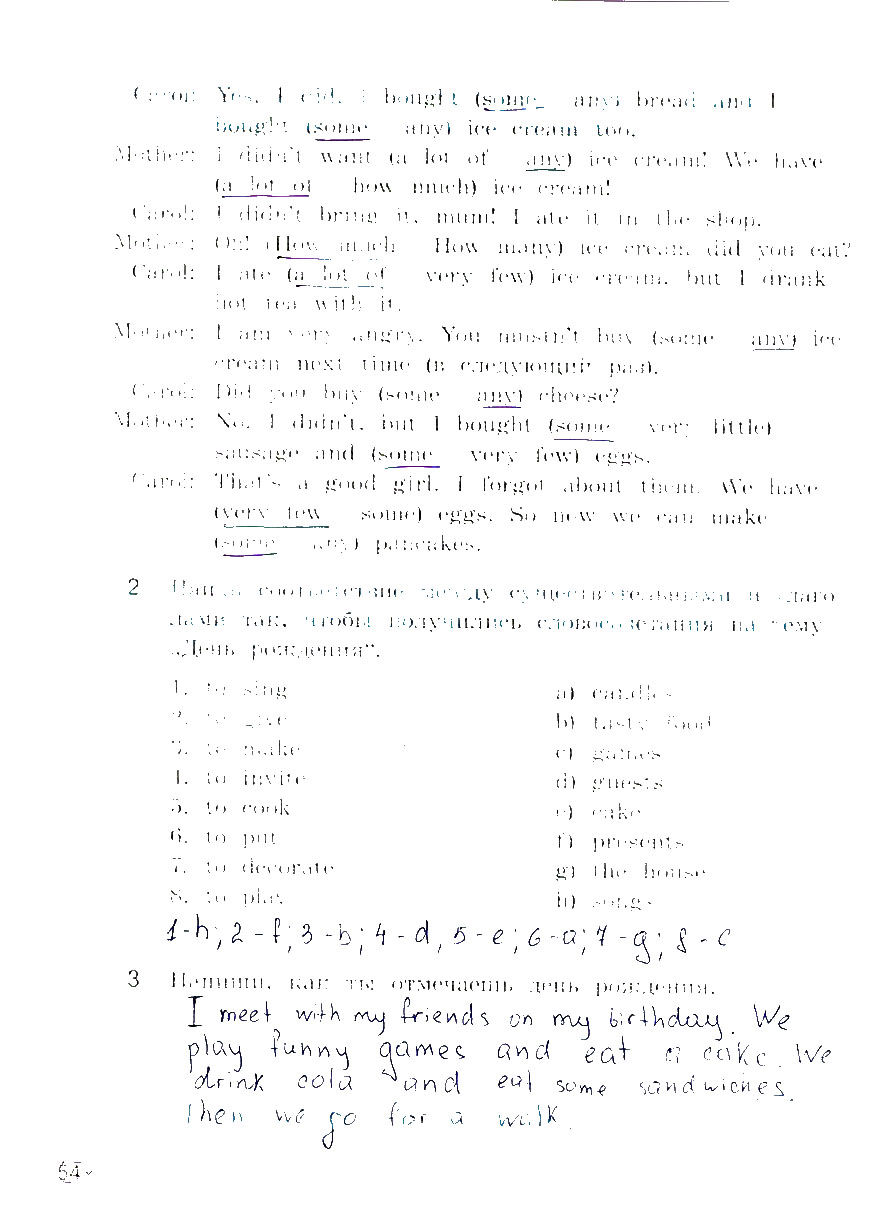 Carol: Yes, I did. I bought (some – any) bread and I
bought (some – any) ice cream too.
Mother: I didn't want (a lot of – any) ice cream! We have
(a lot of – how much) ice cream!
Carol: I didn't bring it, mum! I ate it in the shop.
Mother: Oh! (How much – How many) ice cream did you eat?
Carol: I ate (a lot of – very few) ice cream, but I drank
hot tea with it.
Mother: I am very angry. You mustn't buy (some – any) ice
cream next time (в следующий раз).
Carol: Did you buy (some – any) cheese?
Mother: No, I didn't, but I bought (some – very little)
sausage and (some – very few) eggs.
Carol: That's a good girl. I forgot about them. We have
(very few – some) eggs. So now we can make
(some – any) pancakes.
2 Найди соответствие между существительными и глаго-
лами так, чтобы получились словосочетания на тему
„День рождения“.
1. to sing a) candles
2. to give b) tasty food
3. to make c) games
4. to invite d) guests
5. to cook e) cake
6. to put f) presents
7. to decorate g) the house
8. to play h) songs
1-h; 2-f; 3-b; 4-d, 5-e; 6-a; 7-g; 8-c
3 Напиши, как ты отмечаешь день рождения.
I meet with my friends on my birthday. We
play funny games and eat a cake. We
drink cola and eat some sandwiches.
Then we go for a walk.
54